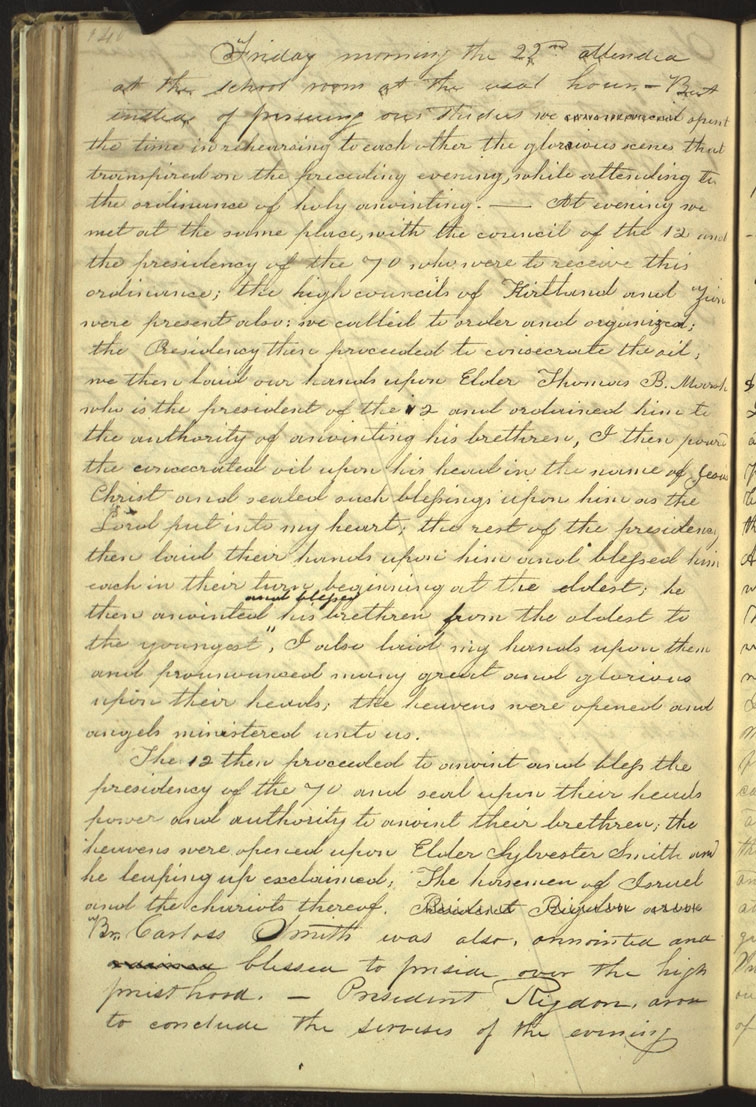 Friday morning the 22nd attended
at the school room at the usal hour,— But
instead of pursuing our studies we spent
the time in rehearsing to each other the glorious scenes that
transpired on the preceding evening, while attending to
the ordinance of holy anointing.— At evening we
met at the same place, with the council of the 12 and
the presidency of the 70 who were to receive this
ordinance; the high councils of Kirtland and Zion
were present also: we called to order and organized;
the Presidency then proceeded to consecrate the oil;
we then laid our hands upon Elder Thomas B. Marsh
who is the president of the 12 and ordained him to
the authority of anointing his brethren, I then poured
the concecrated oil upon his head in the name of Jesus
Christ and sealed such blessings upon him as the
Lord put into my heart; the rest of the presidency
then laid their hands upon him and blessed him
each in their turn beginning at the eldest; he
and blessed
then anointed his brethren from the oldest to
the youngest, I also laid my hands upon them
and pronounced many great and glorious
upon their heads; the heavens were opened and
angels ministered unto us.
The 12 then proceeded to anoint and bless the
presidency of the 70 and seal upon their heads
power and authority to anoint their brethren; the
heavens were opened upon Elder Sylvester Smith and
he leaping up exclaimed; The horsemen of Israel
and the chariots thereof. President Rigdon arose
Br. Carloss Smith was also, annointed and
blessed to preside over the high
priesthood.— President Rigdon, arose
to conclude the servises of the evening